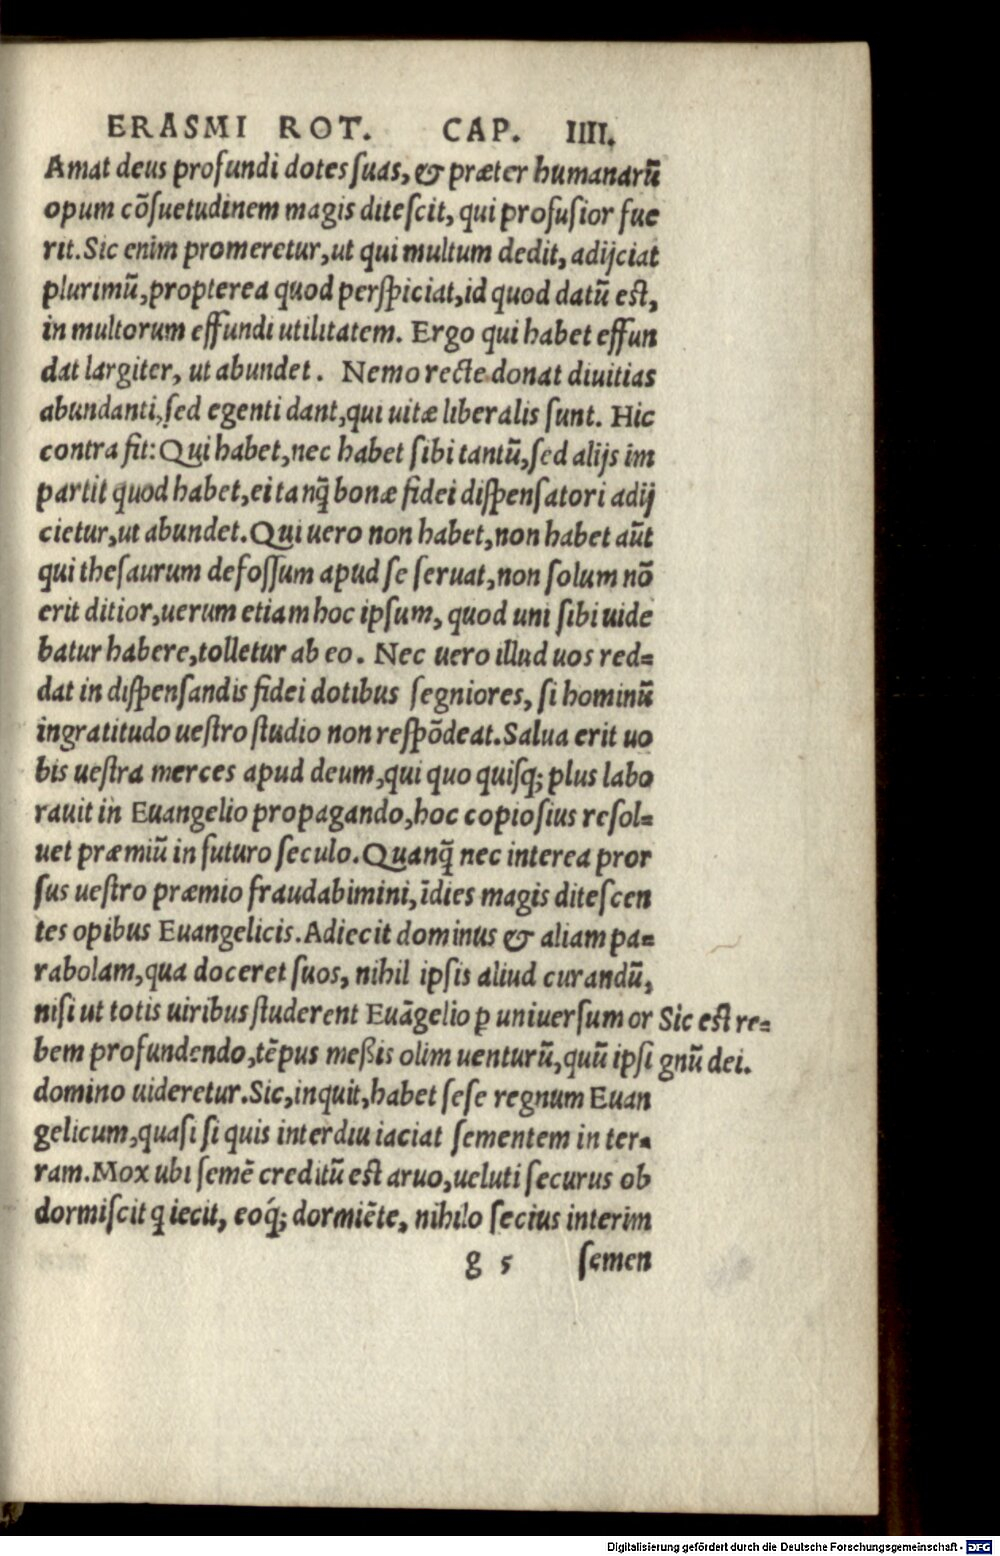 ERASMI ROT. CAP. IIII.
Amat deus profundi dotes ſuas, & præter humanarũ
opum cõſuetudinem magis diteſcit, qui profuſior fue
rit. Sic enim promeretur, ut qui multum dedit, adijciat
plurimũ, propterea quod perſpiciat, id quod datũ eſt,
in multorum effundi utilitatem. Ergo qui habet effun
dat largiter, ut abundet. Nemo recte donat diuitias
abundanti, ſed egenti dant, qui uitæ liberalis ſunt. Hic
contra fit: Qui habet, nec habet ſibi tantũ, ſed alijs im
partit quod habet, ei tanq̃ bonæ fidei diſpenſatori adij
cietur, ut abundet. Qui uero non habet, non habet aũt
qui theſaurum defoſſum apud ſe ſeruat, non ſolum nõ
erit ditior, uerum etiam hoc ipſum, quod uni ſibi uide
batur habere, tolletur ab eo. Nec uero illud uos red=
dat in diſpenſandis fidei dotibus ſegniores, ſi hominũ
ingratitudo ueſtro ſtudio non reſpõdeat. Salua erit uo
bis ueſtra merces apud deum, qui quo quiſq; plus labo
rauit in Euangelio propagando, hoc copioſius reſol=
uet præmiũ in futuro ſeculo. Quanq̃ nec interea pror
ſus ueſtro præmio fraudabimini, ĩdies magis diteſcen
tes opibus Euangelicis. Adiecit dominus & aliam pa=
rabolam, qua doceret ſuos, nihil ipſis aliud curandũ,
niſi ut totis uiribus ſtuderent Euãgelio ꝑ uniuerſum or
bem profundendo, tẽpus meßis olim uenturũ, quũ ipſi
domino uideretur. Sic, inquit, habet ſeſe regnum Euan
gelicum, quaſi ſi quis interdiu iaciat ſementem in ter=
ram. Mox ubi ſemẽ creditũ eſt aruo, ueluti ſecurus ob
dormiſcit q iecit, eoq́; dormiẽte, nihilo ſecius interim
g 5 ſemen
Sic eſt re=
gnũ dei.
Digitalisierung gefördert durch die Deutsche Forschungsgemeinschaft - DFG